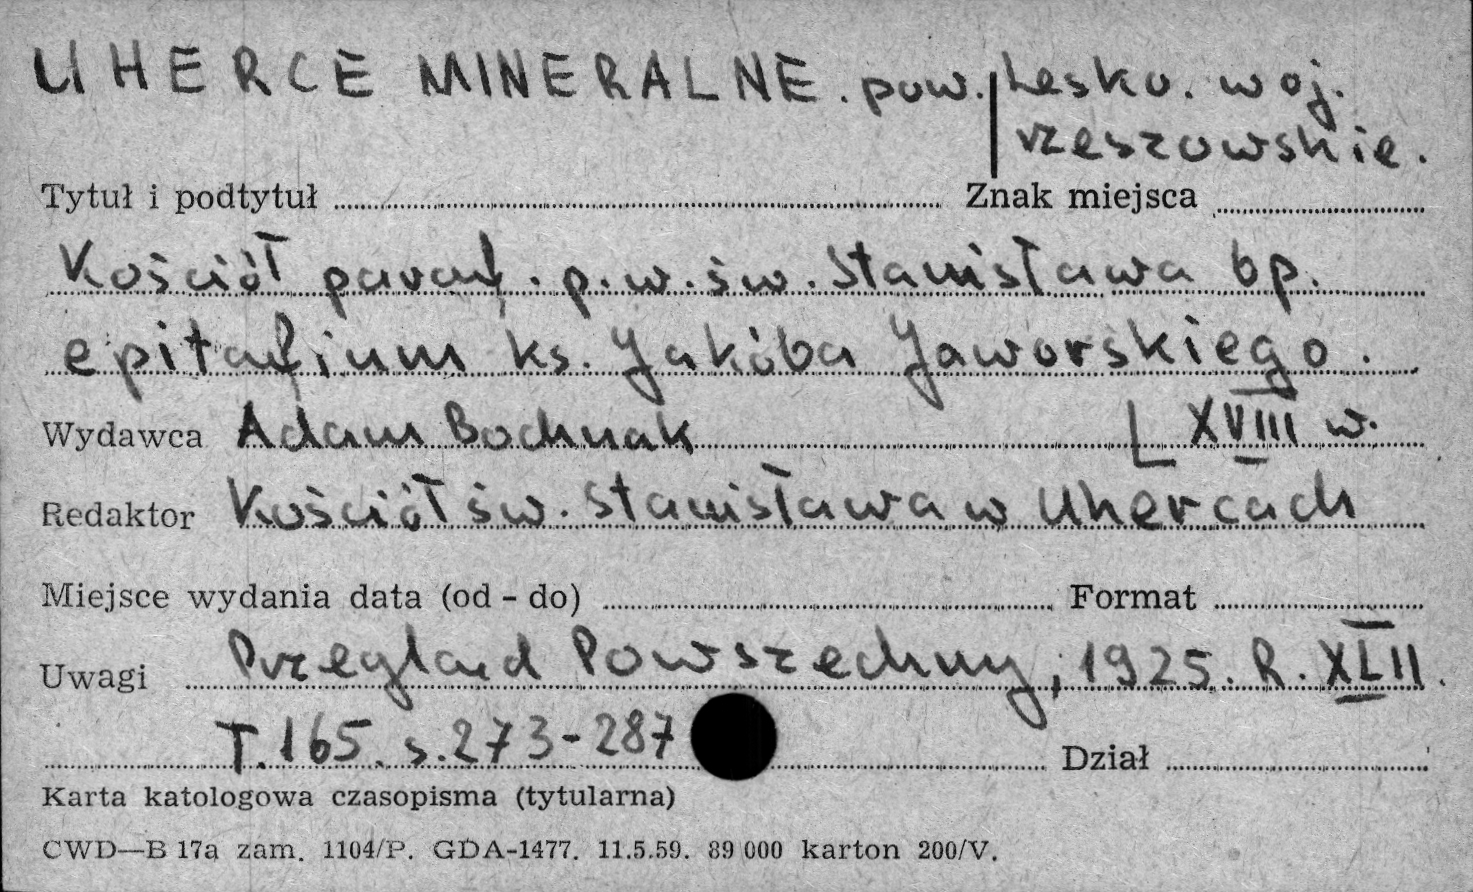 UHERCE MINERALNE. pow. Lesko. woj.
rzeszowskie.
Tytuł i podtytuł Znak miejsca
Kościół paraf. p.w. św. Stanisława bp.
epitafium ks. Jakóba Jaworskiego.
XVIII w.
Wydawca Adam Bochnak
Redaktor Kościół św. Stanisława w Uhercach
Miejsce wydania data (od - do) Format
Uwagi Przegląd Powszechny, 1925. R. XLII.
T. 165. s. 273-287 Dział
Karta katologowa czasopisma (tytularna)
CWD—B 17a zam. 1104/P. GDA-1477. 11.5.59. 89 000 karton 200/V.